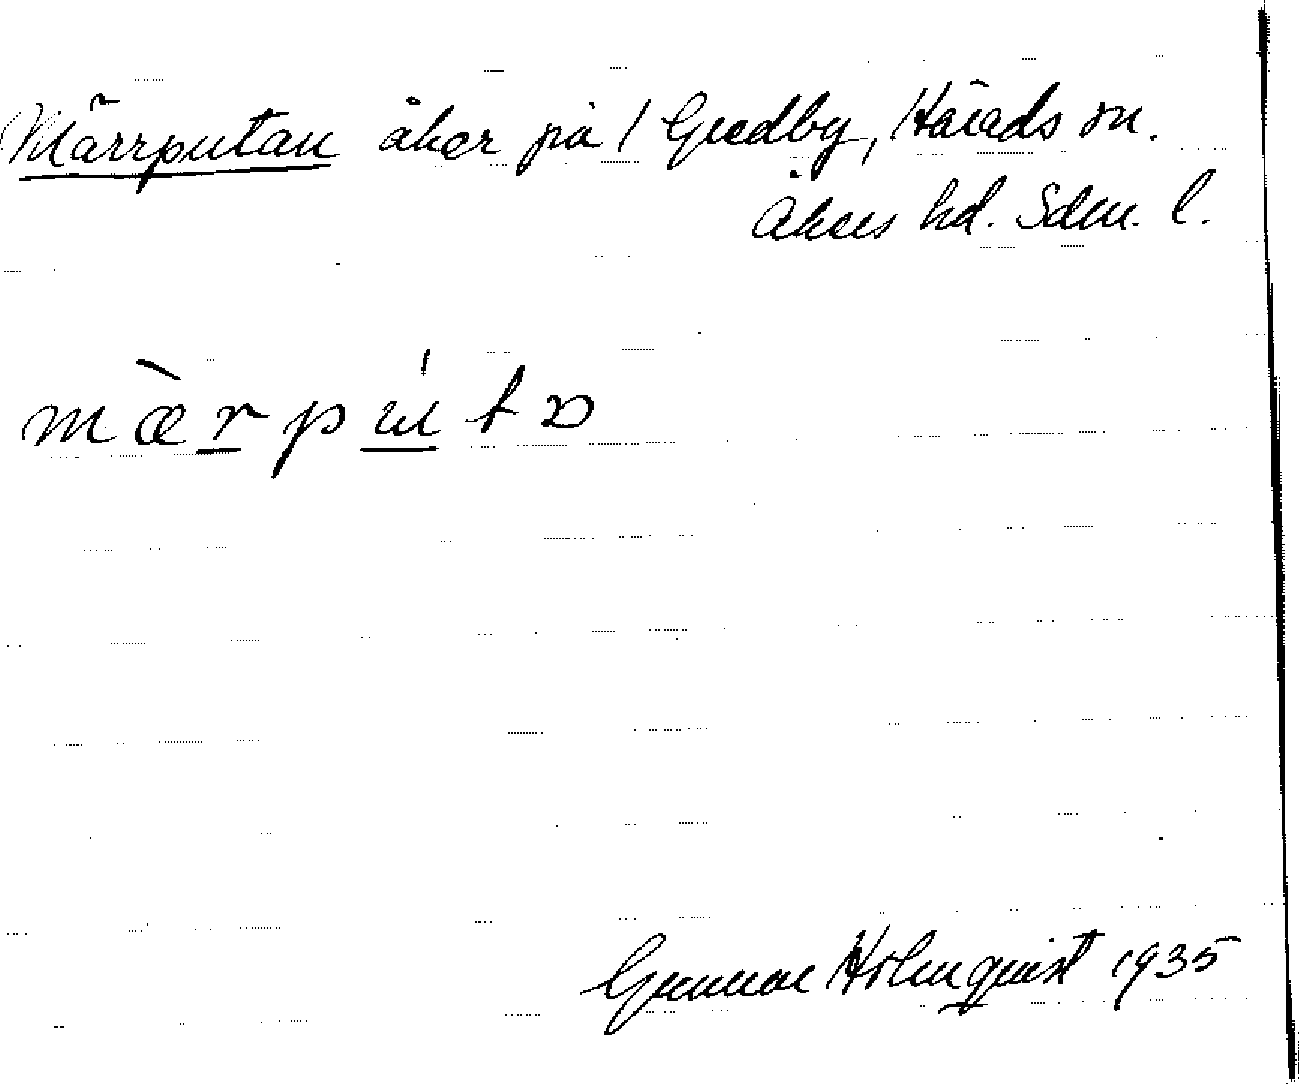 Märrputan åker på / Gredby, Härads sn.
Åkers hd. Sdm. l.
mærputɒ
Gunnar Holmquist 1935